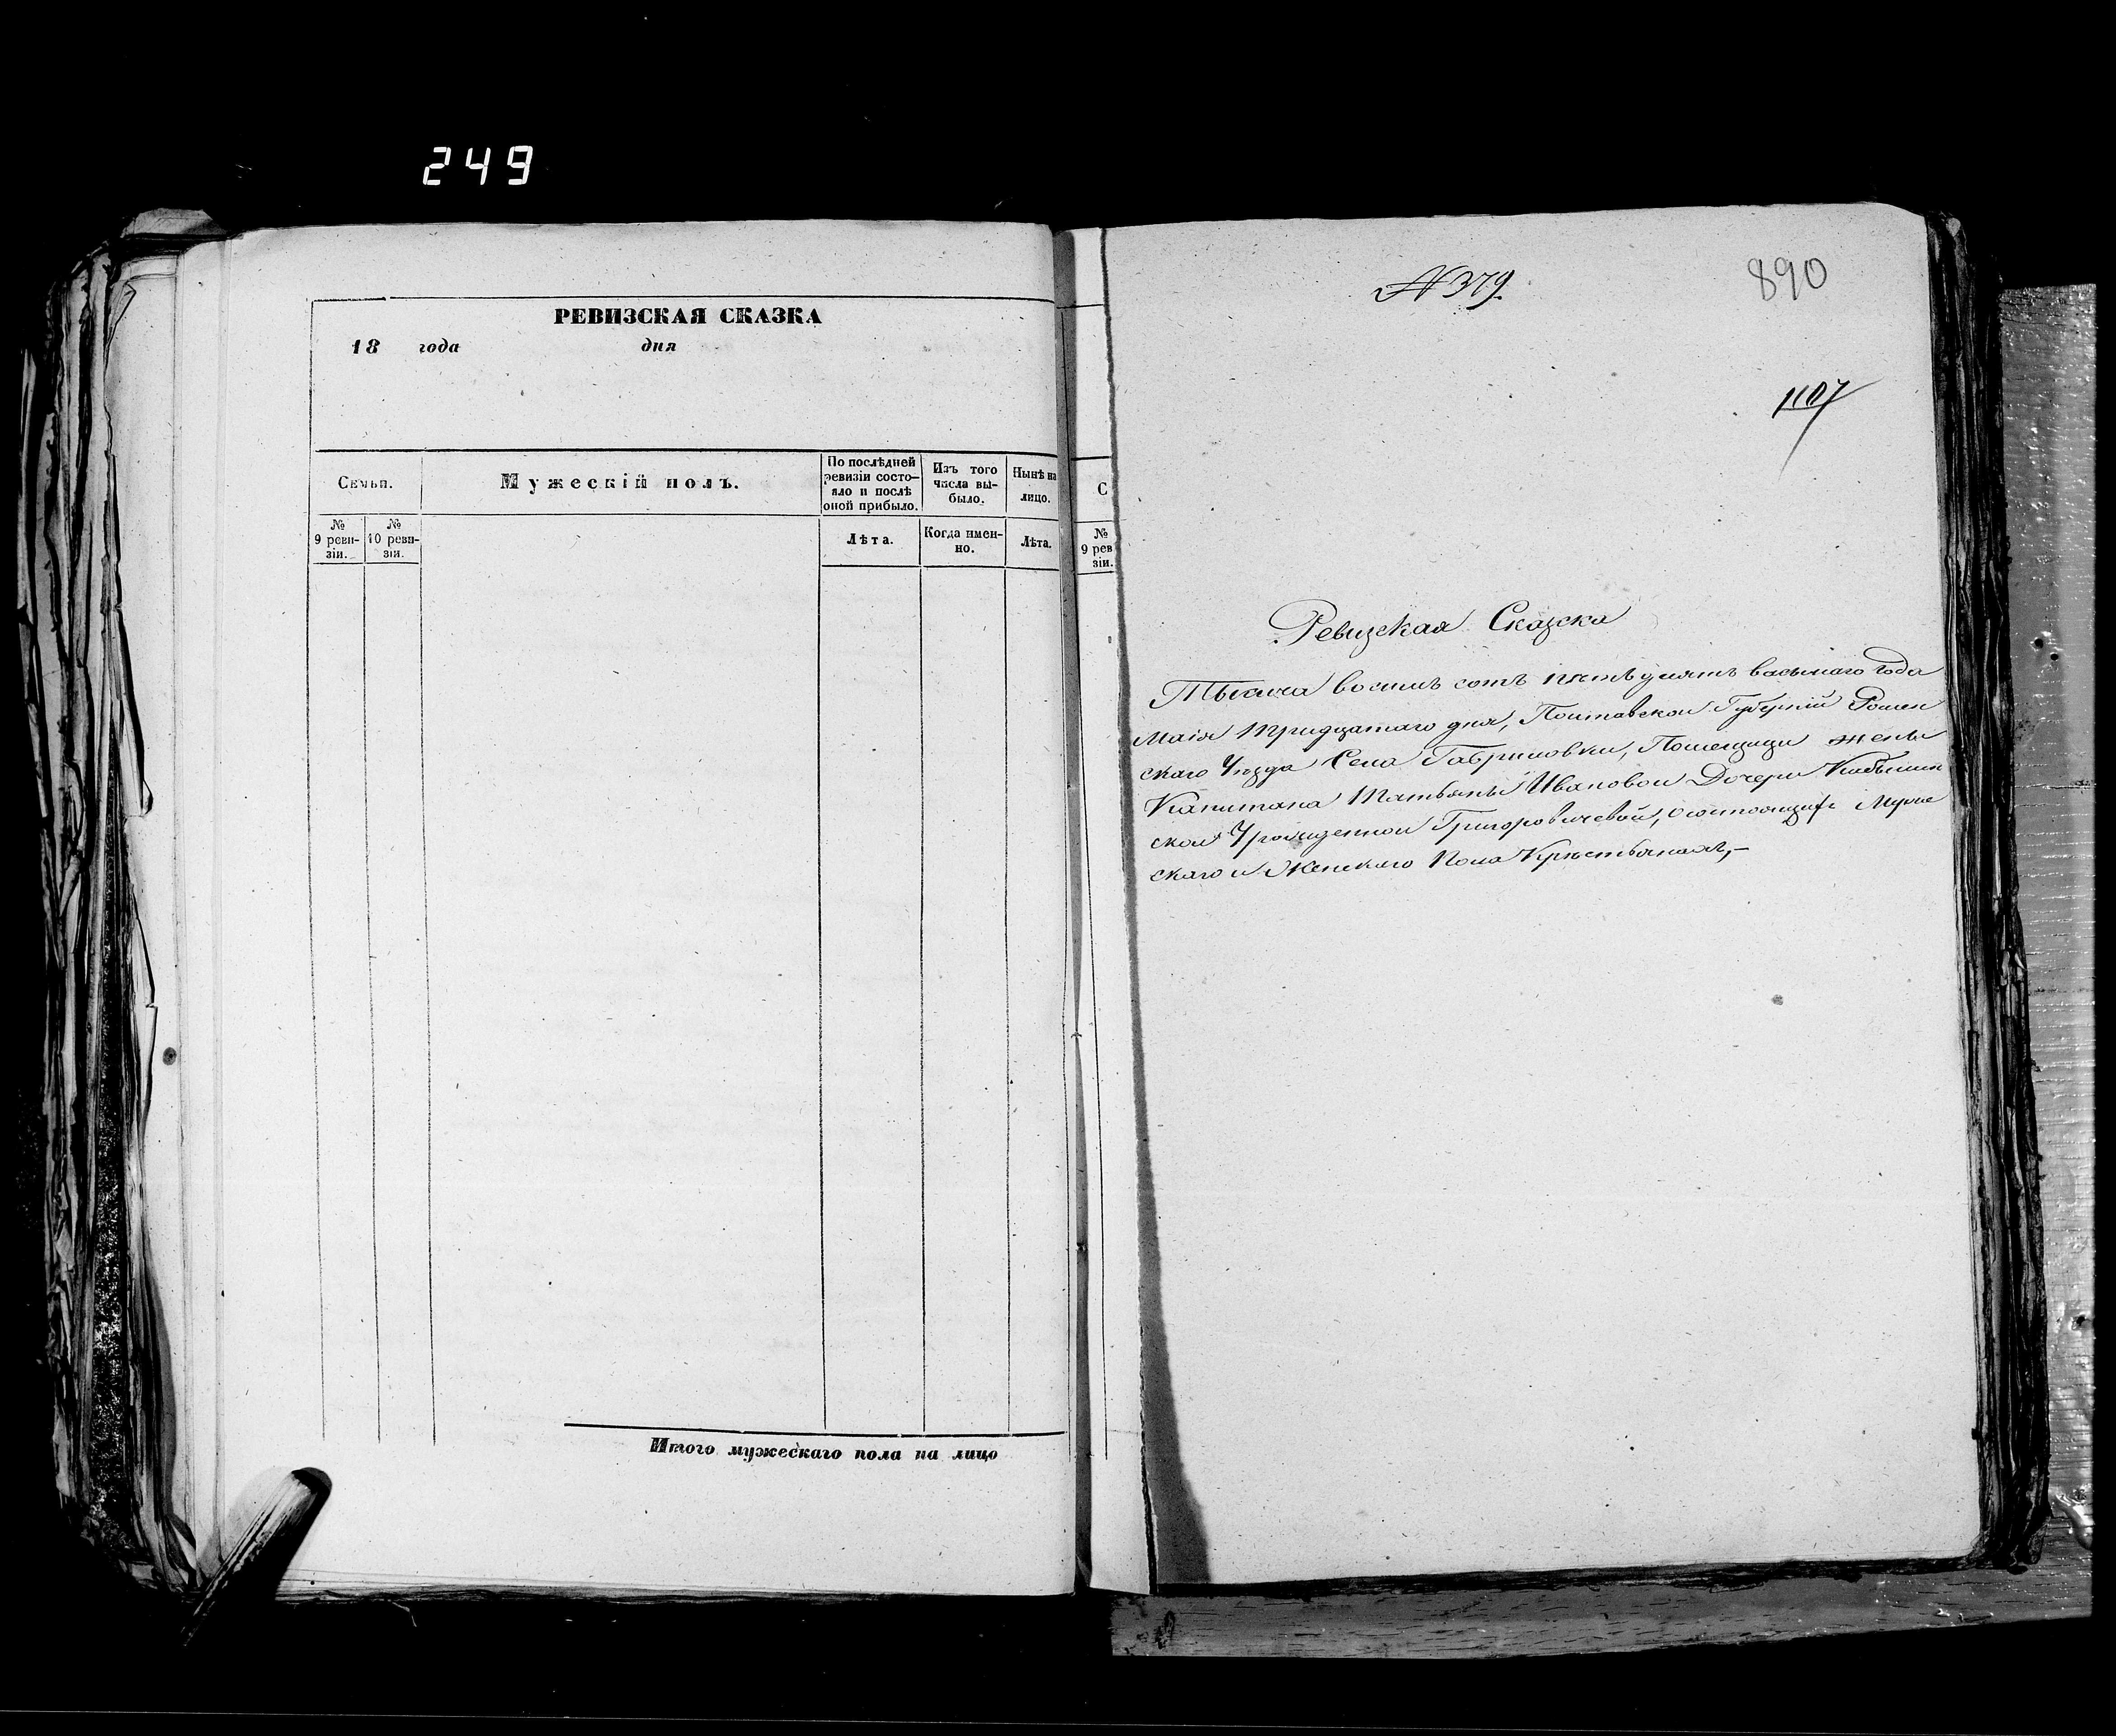 249
РЕВИЗСКАЯ СКАЗКА
18 года дня
Семьи.
Мужескій полъ.
По послѣдней
ревизіи состо-
яло и послѣ
оной прибыло.
Изъ того
числа вы-
было.
Нынѣ на
лицо.
№
9 реви-
зіи.
№
10 реви-
зіи.
Лѣта.
Когда имен-
но.
Лѣта.
Итого мужескаго пола на лицо
С
№
9 рев
зіи.
№ 379.
890
1107
Ревизская Сказка
Тысяча восемь сотъ пятьдесятъ васьмаго года
Маія тридцатаго дня, Полтавской Губерніи Ромен
скаго Уезда Села Гавриловки, Помещицы жены
Капитана Татьяны Ивановой Дочери
ской Урожденной Григоровичевой, о состоящихъ Муже
скаго и Женскаго Пола Крестьянахъ,—